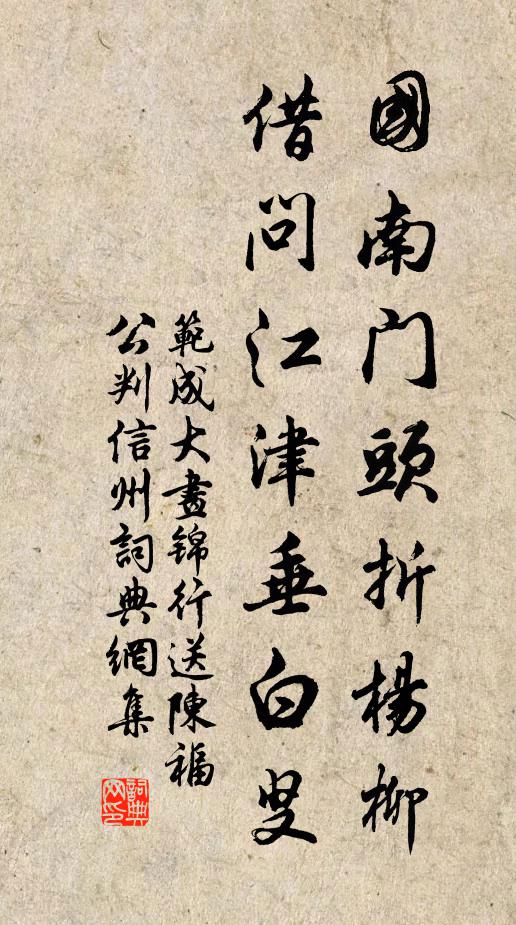 國南門頭折楊柳
借問江津垂白叟
範成大晝錦行送陳福
公判信州詞典網集
詞典网印